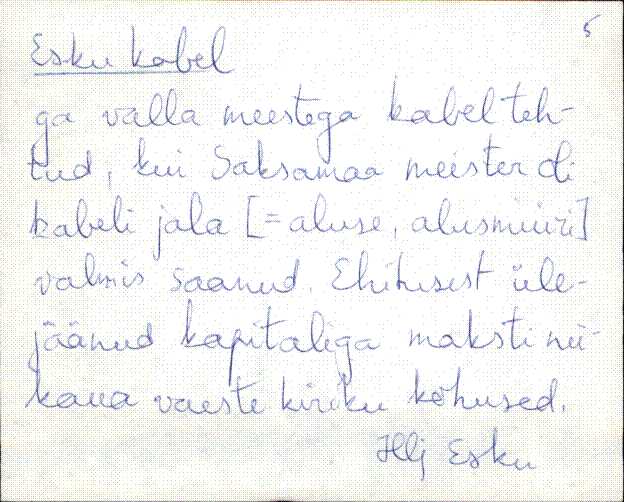 5
Esku kabel
ga valla meestega kabel teh-
tud, kui Saksamaa meister oli
kabeli jala [= aluse, alusmüüri]
valmis saanud. Ehitusest üle-
jäänud kapitaliga maksti nii-
kaua vaeste kiriku kõhused.
Hlj Esku